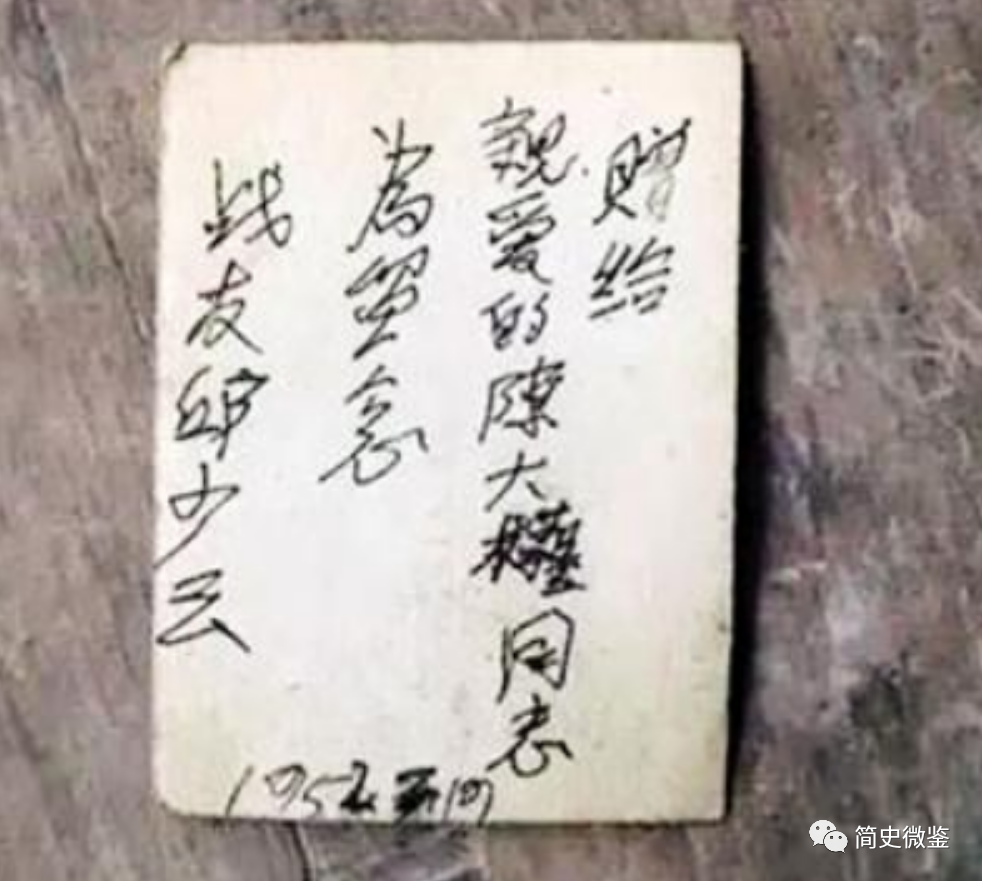 赠给
親爱的陳大權同志
為留念
战友邱少云
1952
简史微鉴